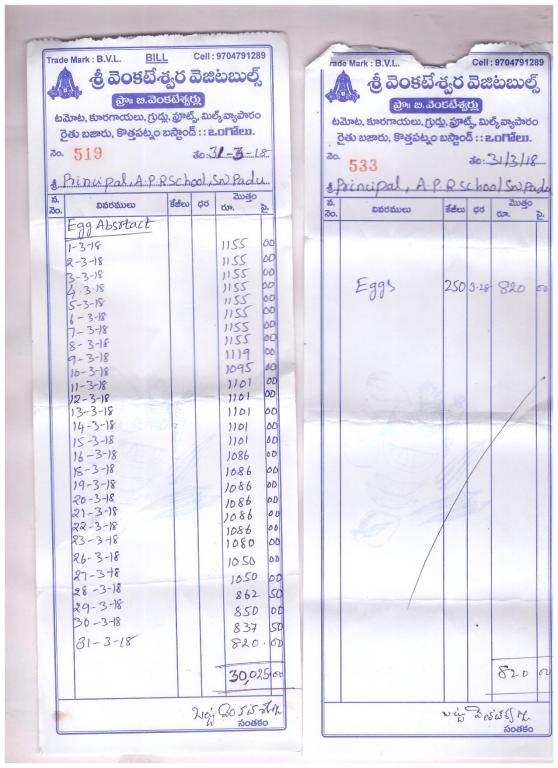 Trade Mark : B.V.L. BILL Cell : 9704791289
శ్రీ వెంకటేశ్వర వెజిటబుల్స్
ప్రొః బి.వెంకటేశ్వర్లు
టమోట, కూరగాయలు, గ్రుడ్లు, ఫ్రూట్స్, మిల్క్ వ్యాపారం
రైతు బజారు, కొత్తపట్నం బస్టాండ్ :: ఒంగోలు.
నెం. 519 తేది: 31-3-18
శ్రీ Principal, A.P.R School, SN Padu
వ. నెం. వివరములు కేజీలు ధర మొత్తం రూ. పై.
Egg Abstract
1-3-18 1155 00
2-3-18 1155 00
3-3-18 1155 00
4-3-18 1155 00
5-3-18 1155 00
6-3-18 1155 00
7-3-18 1155 00
8-3-18 1155 00
9-3-18 1119 00
10-3-18 1095 00
11-3-18 1101 00
12-3-18 1101 00
13-3-18 1101 00
14-3-18 1101 00
15-3-18 1101 00
16-3-18 1086 00
18-3-18 1086 00
19-3-18 1086 00
20-3-18 1086 00
21-3-18 1086 00
22-3-18 1086 00
23-3-18 1080 00
26-3-18 1050 00
27-3-18 1050 00
28-3-18 862 50
29-3-18 850 00
30-3-18 837 50
31-3-18 820.00
30,025.00
సంతకం
rade Mark : B.V.L. BILL Cell : 9704791289
శ్రీ వెంకటేశ్వర వెజిటబుల్స్
ప్రొః బి.వెంకటేశ్వర్లు
టమోట, కూరగాయలు, గ్రుడ్లు, ఫ్రూట్స్, మిల్క్ వ్యాపారం
రైతు బజారు, కొత్తపట్నం బస్టాండ్ :: ఒంగోలు.
నెం. 533 తేది: 31/3/18
శ్రీ Principal, A.P.R School SN Padu
వ. నెం. వివరములు కేజీలు ధర మొత్తం రూ. పై.
Eggs 250 3-28 820 00
820 00
సంతకం